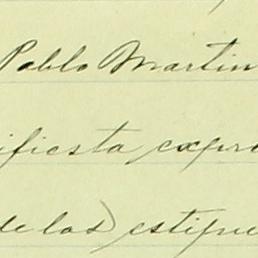 Pablo Martin
ifiesta expre
de las estipu